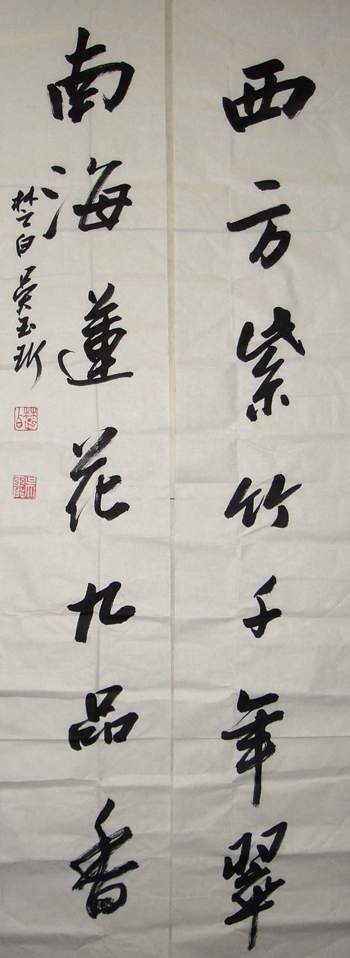 西方紫竹千年翠
南海蓮花九品香
楚白吳玉圻